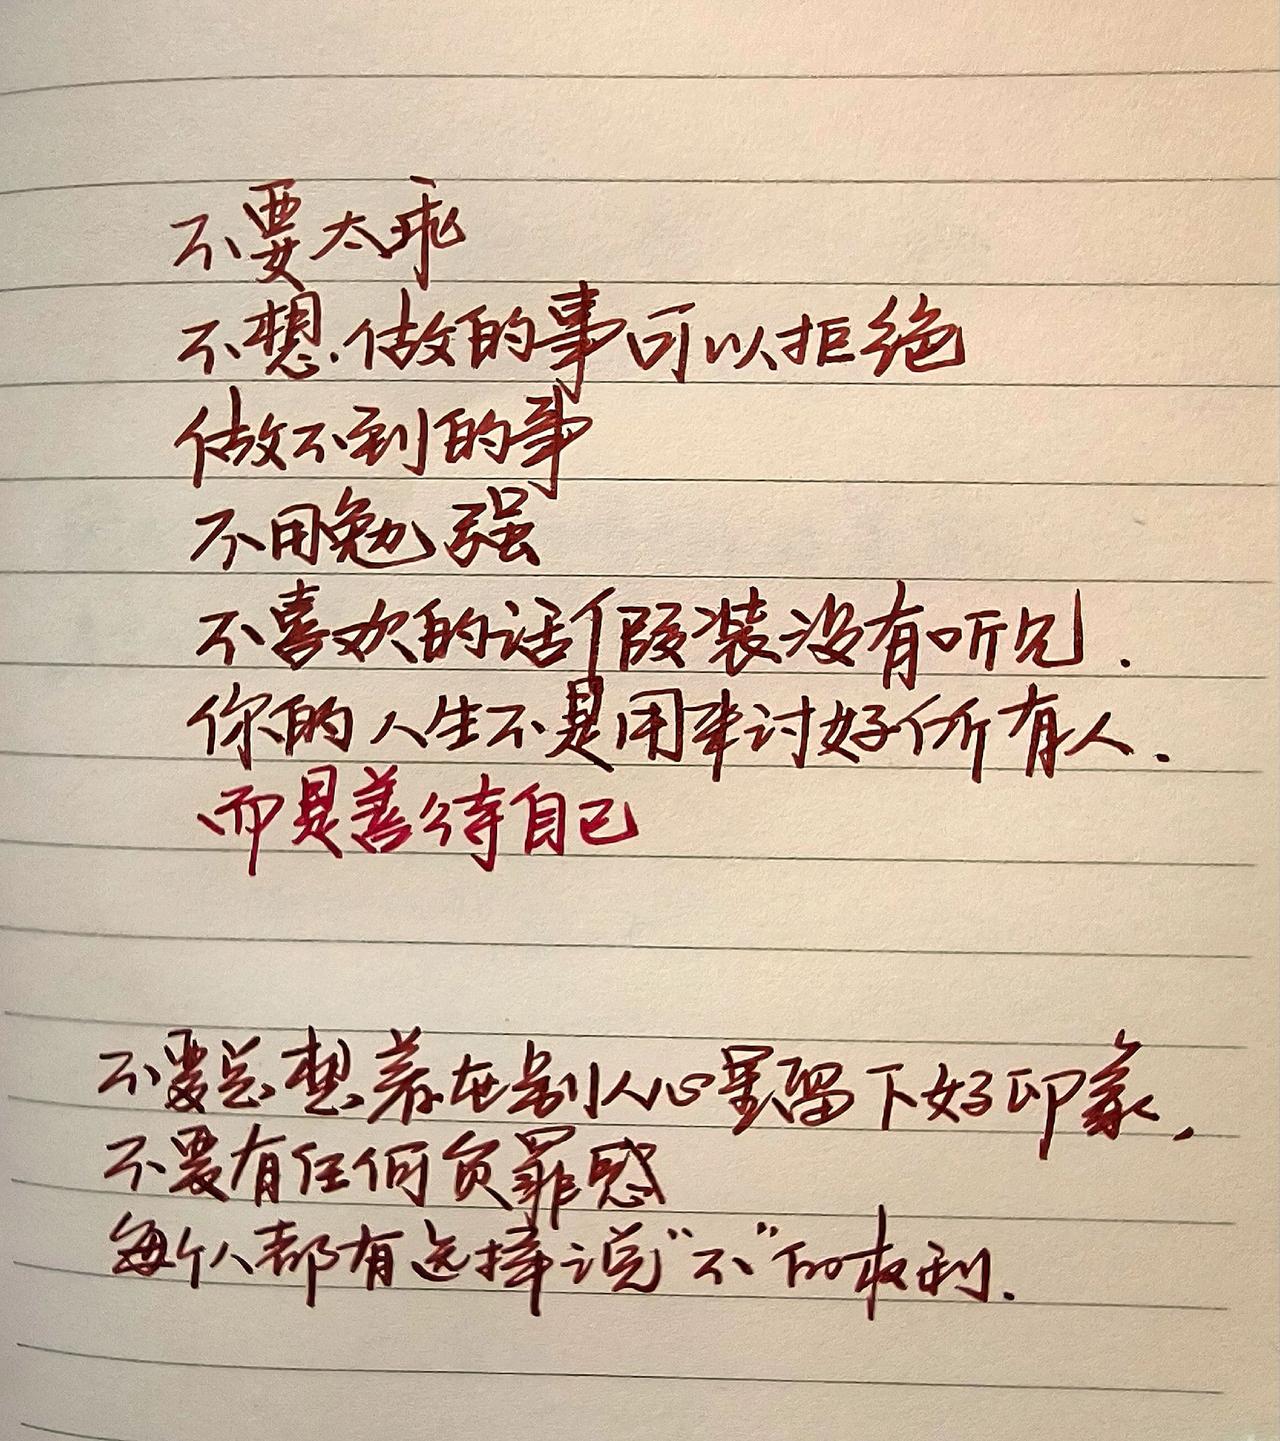 不要太乖
不想.做的事可以拒绝
做不到的事
不用勉强
不喜欢的话假装没有听见.
你的人生不是用来讨好所有人.
而是善待自己
不要总想着在别人心里留下好印象,
不要有任何负罪感
每个人都有选择说"不"的权利.